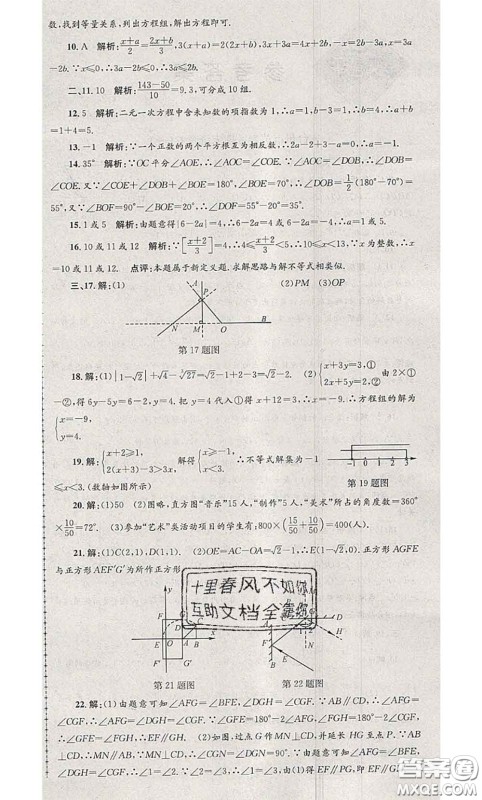 数,找到等量关系,列出方程组,解出方程即可.
10. A 解析: (x+a)/2=(2x+b)/3, 3(x+a)=2(2x+b), 3x+3a=4x+2b, -x=-3a-2b, x=3a-2b. ∵x≤0, ∴3a-2b≤0, ∴3a≤2b.
二、11. 10 解析: (143-50)/10=9.3, 可分成10组.
12. 5 解析: 二元一次方程中含未知数的项指数为1, ∴a=1, b-3=1, ∴b=4, ∴a+b
=1+4=5.
13. -1 解析: ∵一个正数的两个平方根互为相反数, ∴2a-2+3-a=0, ∴a=-1.
14. 35° 解析: ∵OC平分∠AOE, ∴∠AOC=∠COE. ∵∠AOC=∠DOB, ∴∠DOB
=∠COE. 又∵∠COE+∠DOE+∠DOB=180°, ∴∠COE=∠DOB=1/2(180°-70°)=
55°, 又∵∠BOF=90°-∠BOE=20°, ∴∠DOF=55°-20°=35°.
15. 1或5 解析: 由题意得|6-2a|=4, ∴6-2a=4或6-2a=-4, ∴a=1或a=5.
16. 10或11或12 解析: ∵[(x+2)/3]=4, ∴4≤(x+2)/3<5, ∴10≤x<13, ∵x为整数, ∴x
=10或11或12. 点评: 本题属于新定义题. 求解思路与解不等式相似.
三、17. 解: (1) (2)PM (3)OP
A P N M O B
第17题图
18. 解: (1)|1-√2|+√4-∛27=√2-1+2-3=√2-2. (2){x+3y=3,① 2x+5y=2,② 由2×①
-②, 得6y-5y=6-2, y=4. 把y=4代入①得x+12=3, x=-9. ∴方程组的解为
{x=-9, y=4.
19. 解: {x+2≥1, 2(x+3)-3>3x, 解得{x≥-1, x<3, ∴不等式解集为-1
≤x<3. (数轴如图所示)
-1 0 1 2 3
第19题图
20. 解: (1)50 (2)图略, 直方图“音乐”15人, “制作”5人, “美术”所占的角度数=360°
×10/50=72°. (3)参加“艺术”类活动项目的学生有: 800×(15/50+10/50)=400(人).
21. 解: (1)C(2,1), D(1,1). (2)OE=AC-OA=√2-1. (3)如图. 正方形AGFE
与正方形AEF′G′为所作正方形.
十里春风不如你
互助文档全靠你
第21题图
第22题图
22. 解: (1)由题意可知∠AFG=∠BFE, ∠DGH=∠CGF. ∵AB∥CD, ∴∠AFG=
∠CGF, ∴∠AFG=∠DGH. ∵∠EFG=180°-2∠AFG, ∠FGH=180°-2∠CGF,
∴∠EFG=∠FGH, ∴EF∥GH. (2)如图, 过点G作GN⊥CD, 并延长HG交CD于点
M. ∵AB⊥MN, ∴AB∥GN, ∴∠CGN=∠DGN=90°. ∵由题意可知∠AFG=∠BFE,